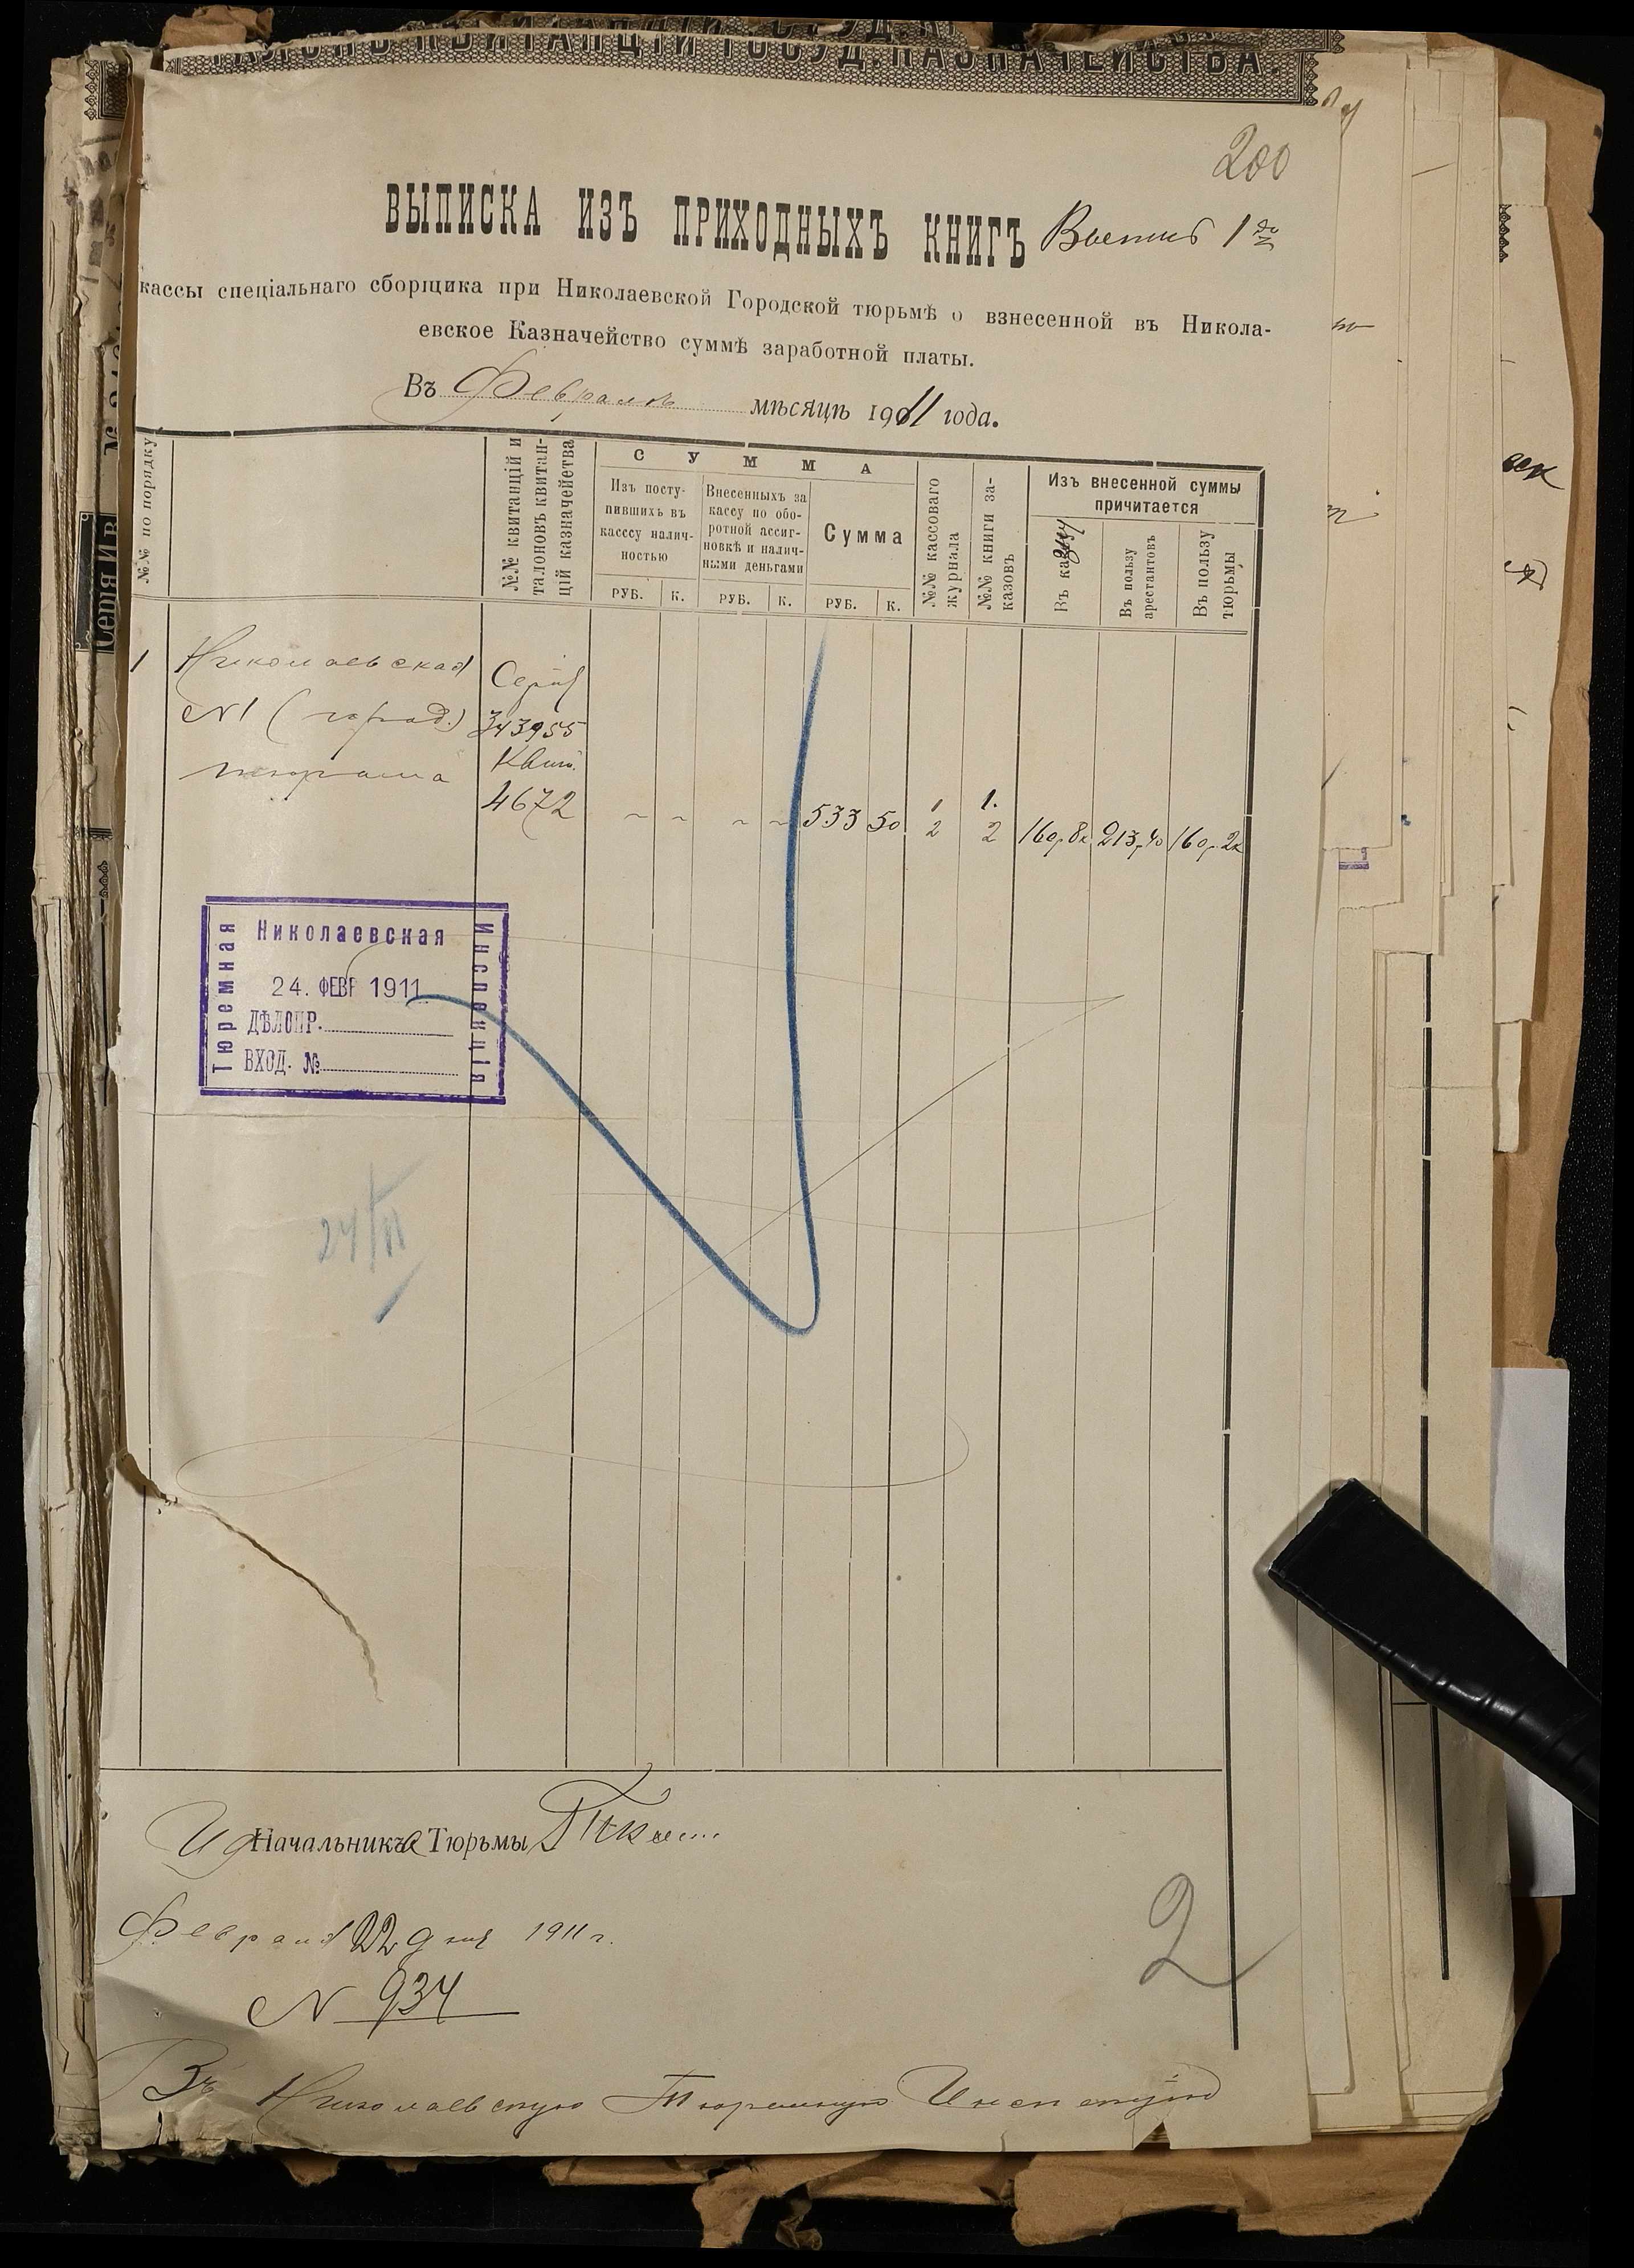 ТАЛОНЪ КВИТАНЦІИ ГОСУД. КАЗНАЧЕЙСТВА.
200
ВЫПИСКА ИЗЪ ПРИХОДНЫХЪ КНИГЪ
кассы спеціальнаго сборщика при Николаевской Городской тюрьмѣ о взнесенной въ Никола-
евское Казначейство суммѣ заработной платы.
Въ Февралѣ мѣсяцѣ 1911 года.
№№ по порядку
№№ квитанцій и
талоновъ квитан-
цій казначейства
СУММА
Изъ посту-
пившихъ въ
касссу налич-
ностью
Внесенныхъ за
кассу по обо-
ротной ассиг-
новкѣ и налич-
ными деньгами
Сумма
РУБ. К. РУБ. К. РУБ. К.
№№ кассоваго
журнала
№№ книги за-
казовъ
Изъ внесенной суммы
причитается
Въ казну
Въ пользу
арестантовъ
Въ пользу
тюрьмы
1 Николаевская
N1 (город.)
тюрьма
Серія
343955
Квит.
4672
533 50
1
2
1.
2
160р 8к 213р 40 160р. 2к
Николаевская
Тюремная
Инспекція
24. ФЕВР 1911
ДѢЛОПР.
ВХОД. №
24/II
Ид Начальника Тюрьмы
Февраля 22 дня 1911 г.
N 934
2
Въ Николаевскую Тюремную Инспекцію
Серія И В